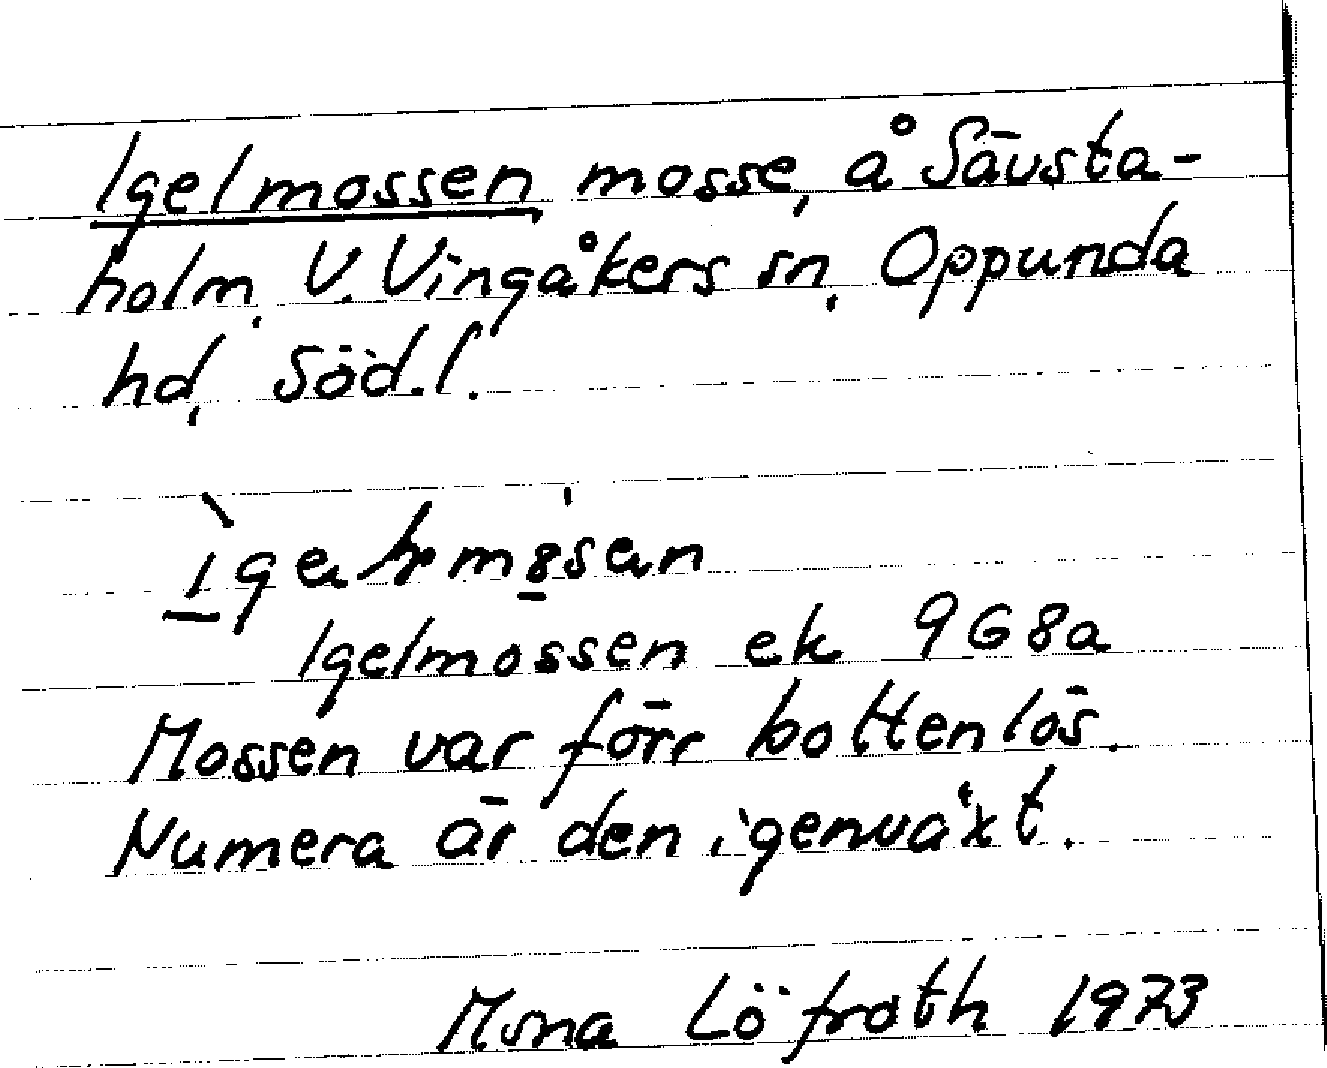 Igelmossen mosse, å Sävsta-
holm, V. Vingåkers sn, Oppunda
hd, Söd.l.
Igelmossen ek 9G8a
Mossen var förr bottenlös.
Numera är den igenväxt.
Mona Löfroth 1973